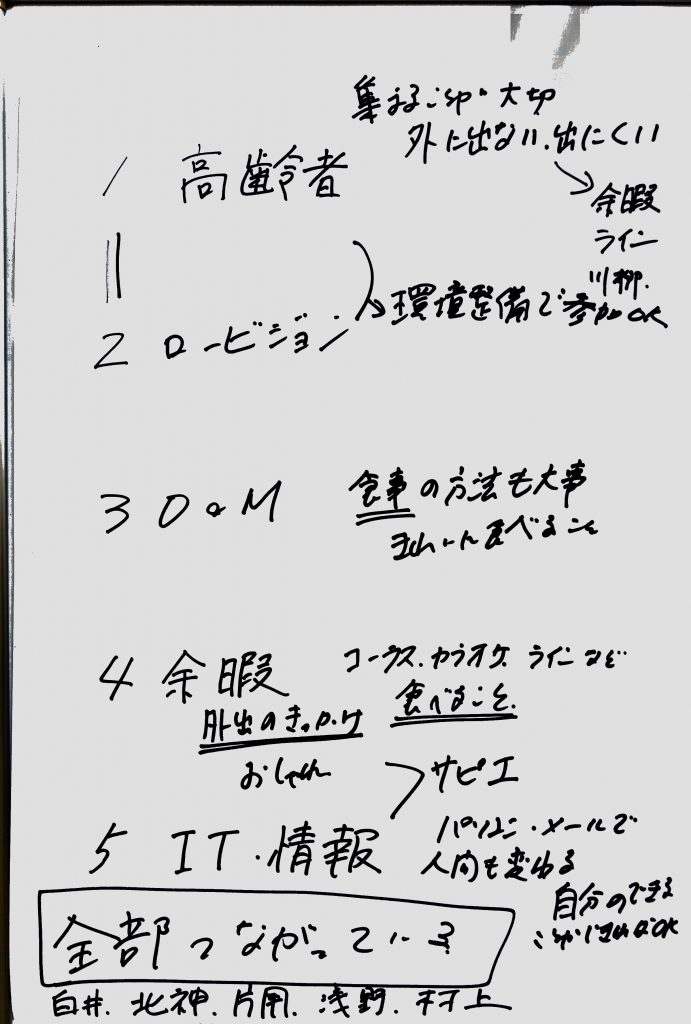 集まることが大切
外に出ない、出にくい
1 高齢者
余暇
ライン
川柳
||
環境整備で参加OK
2 ロービジョン
3 O&M
食事の方法も大事
きれいに食べること
4 余暇
コーラス、カラオケ、ラインなど
外出のきっかけ
食べること
おしゃれ
サピエ
5 IT・情報
パソコン・メールで
人間も変わる
自分のできる
ことができればOK
全部つながっている
白井、北神、片岡、浅野、村上